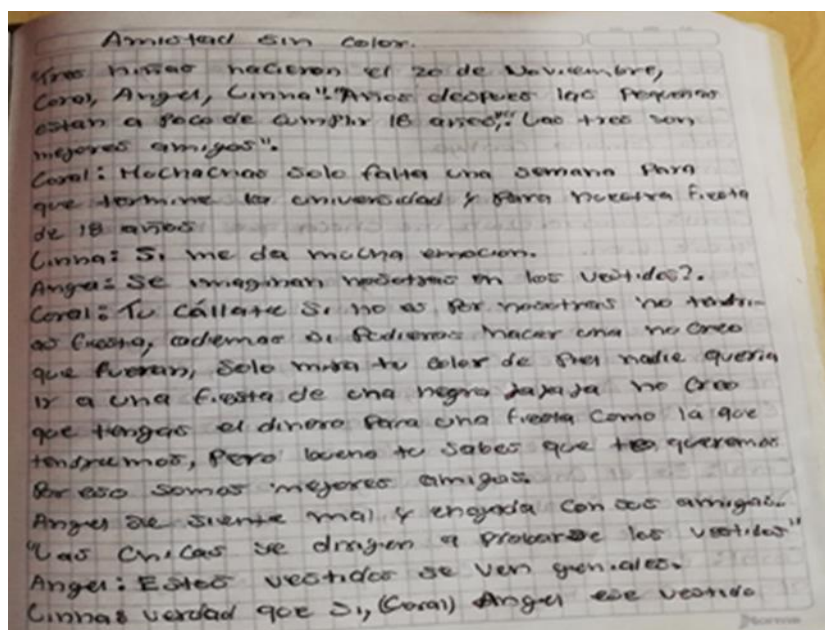 Amistad sin color.
"Tres niñas nacieron el 20 de Noviembre,
Coral, Angel, Linna". "Años despues las pequeñas
estan a poco de cumplir 18 años"; "Las tres son
mejores amigas".
Coral: Muchachas solo falta una semana para
que termine la universidad y para nuestra fiesta
de 18 años
Linna: Si me da mucha emocion.
Angel: Se imaginan nosotras en los vestidos?.
Coral: Tu cállate si no es por nosotras no tendri-
as fiesta, ademas si pudieras hacer una no creo
que fueran, solo mira tu color de piel nadie queria
ir a una fiesta de una negra jajaja no creo
que tengas el dinero para una fiesta como la que
tendremos, pero bueno tu sabes que te queremos
por eso somos mejores amigas.
Angel se siente mal y enojada con sus amigas.
"Las chicas se dirigen a probarse los vestidos"
Angel: Estos vestidos se ven geniales.
Linna: verdad que si, (Coral) Angel ese vestido
Norma